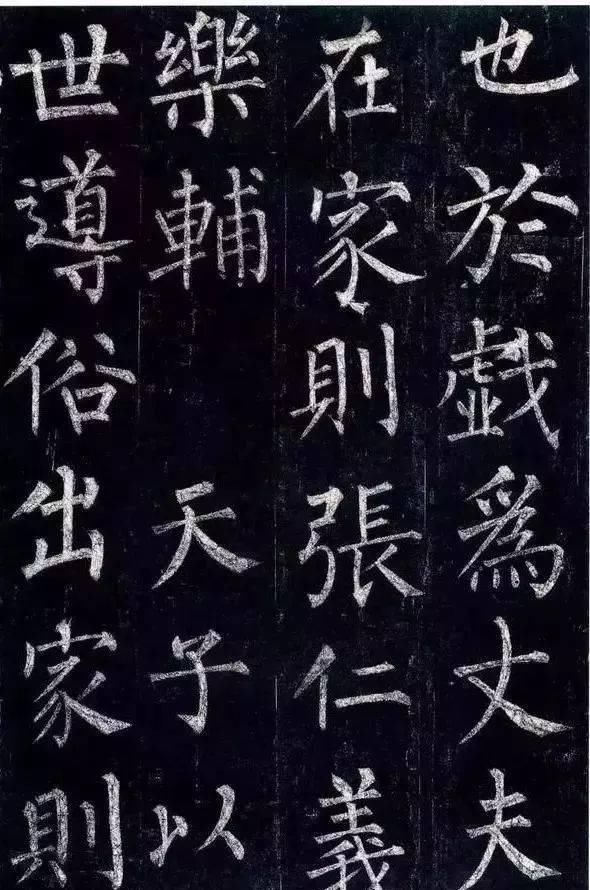 也於戯為丈夫
在家則張仁義
樂輔天子以
世導俗出家則